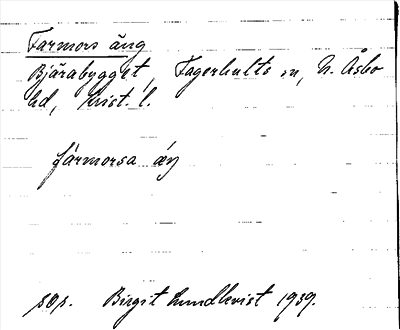 Farmors äng
Bjärabygget, Fagerhults sn, N. Åsbo
hd, Krist. l.
fármorsa æŋ
sps. Birgit Lundkvist 1939.